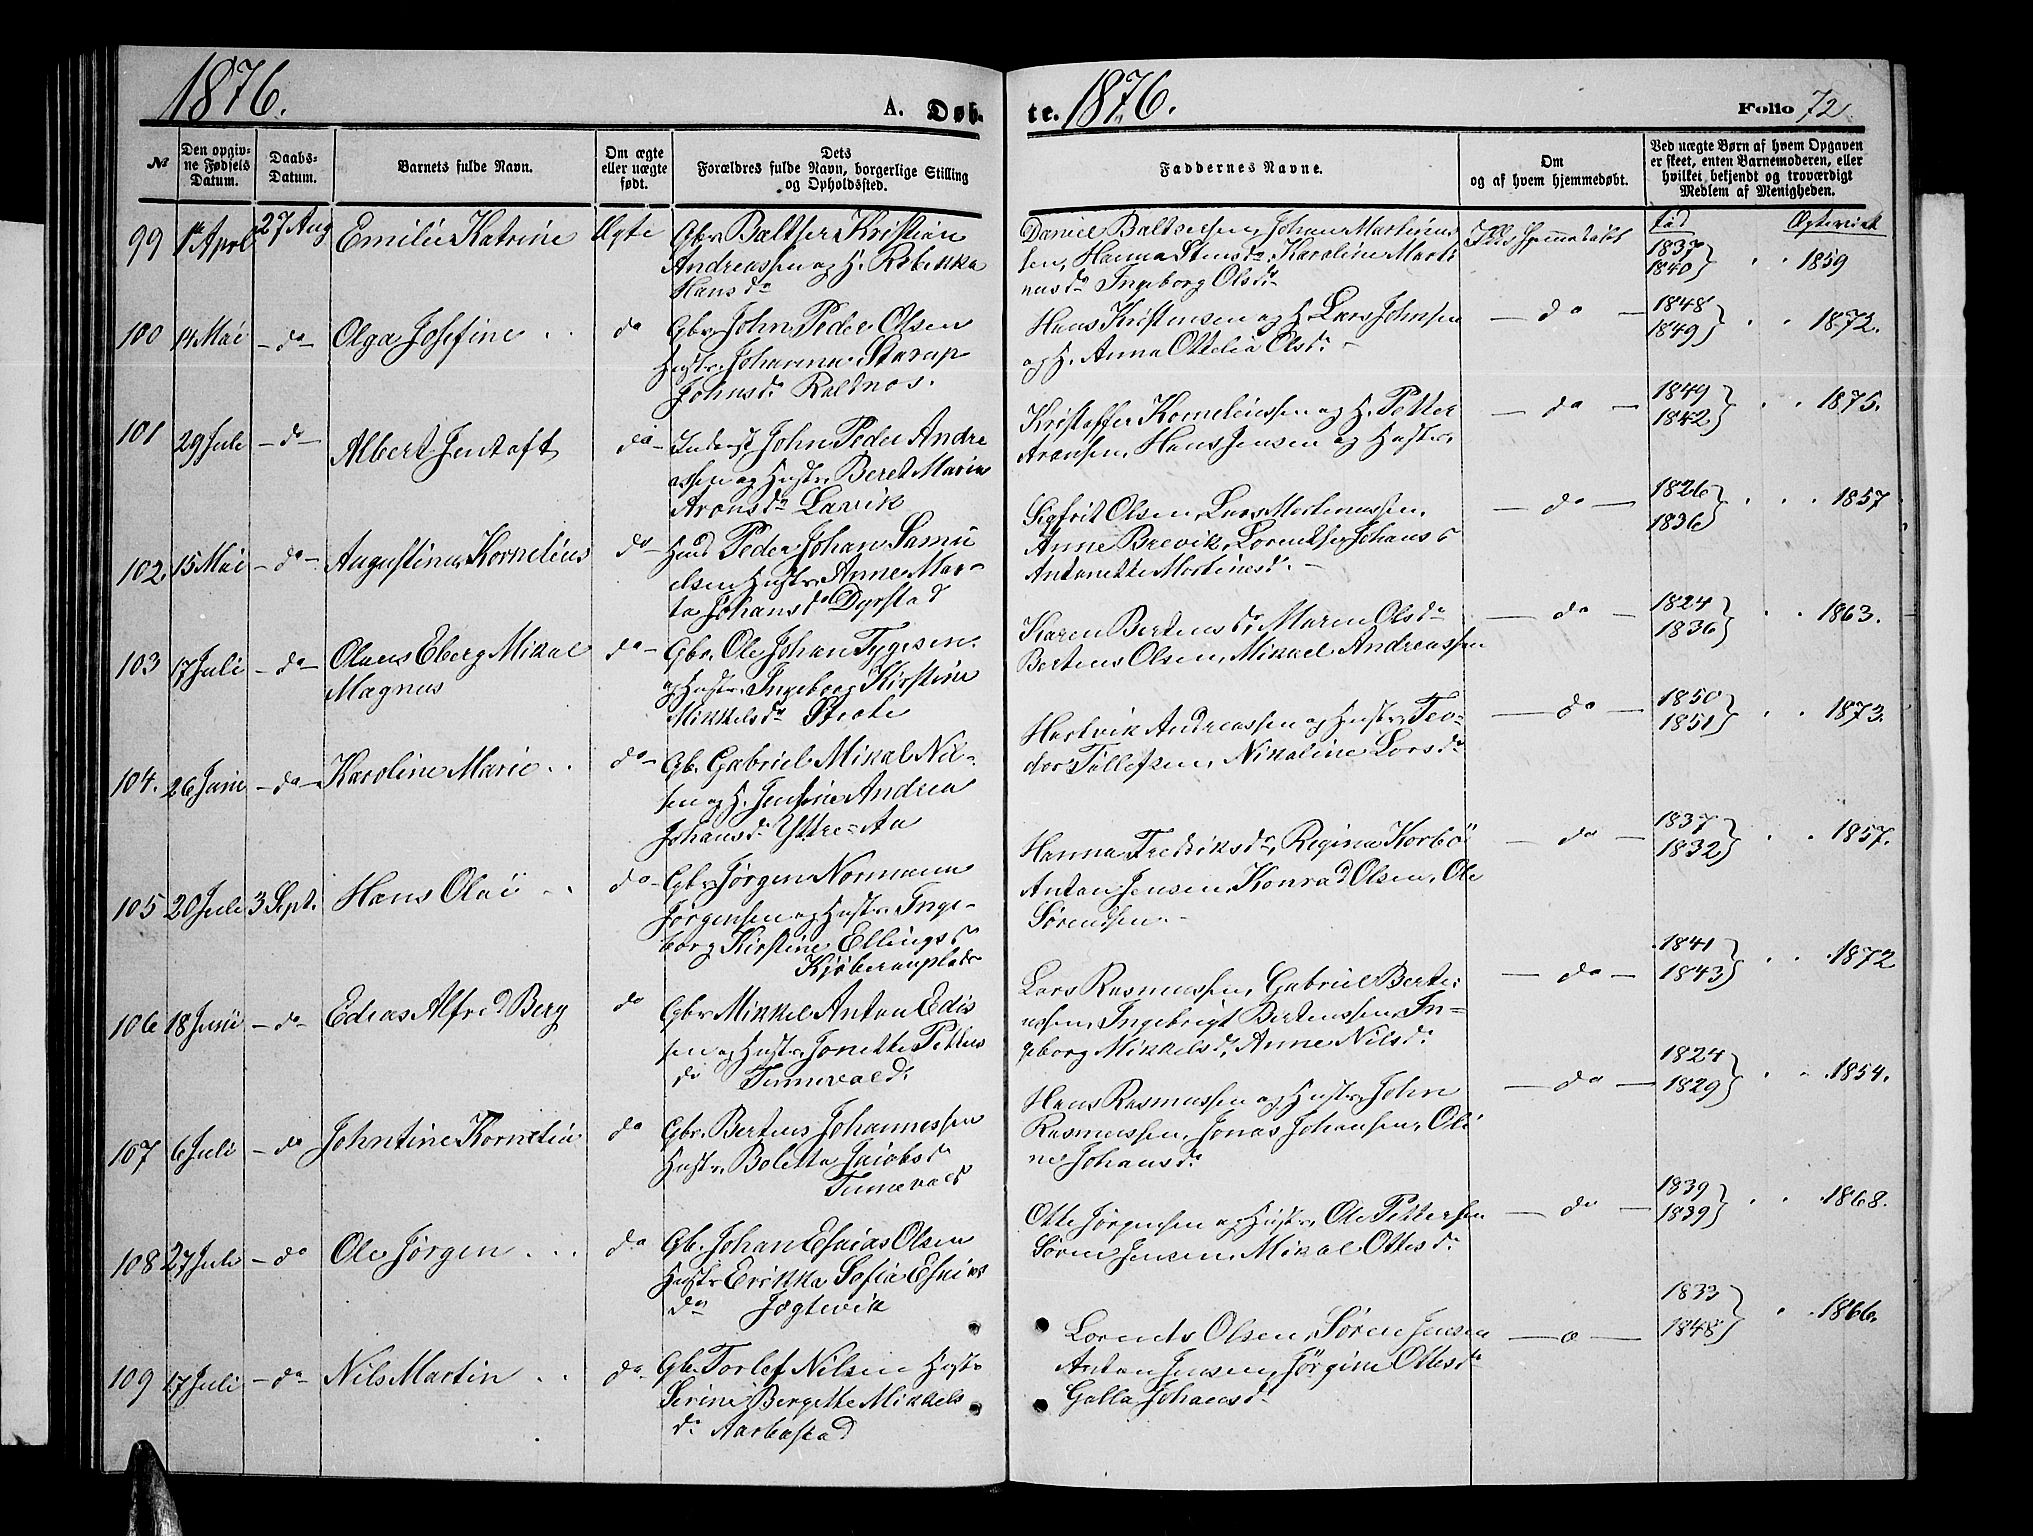 1876.
A. Døb-
te. 1876.
Folio 72
№
Den opgiv-
ne Fødsels
Datum.
Daabs-
Datum.
Barnets fulde Navn.
Om ægte
eller uægte
født.
Dets
Forældres fulde Navn, borgerlige Stilling
og Opholdssted.
Faddernes Navne.
Om
og af hvem hjemmedøbt.
Ved uægte Børn af hvem Opgaven
er skeet, enten Barnemoderen, eller
hvilket, bekjendt og troværdigt
Medlem af Menigheden.
99 1ste April 27 Aug Emilie Katrine Ægte
Gbr. Baltser Kristian
Andreassen og H. Rebekka
Hansdr
Daniel Baltsersen, Johan Martinus
sen, Hanna Stensdr Karoline Marti
nusdr Ingeborg Olsdr
Ikke hjemmedøbt
fød Ægteviet
1837
1840 } 1859
100 14 Mai – do – Olga Josefine do
Gbr. John Peder Olsen
Hustr. Johanna Sharap
Johnsdr Roldnes.
Hans Kristensen og H. Lars Johnsen
og H. Anna Ottelia Olsdr –
– do –
1848
1849 } 1872.
101 29 Juli – do – Albert Jentoft do
Inderst John Peder Andre
assen og Hustr. Beret Marie
Aronsdr Lavik
Kristoffer Kornelinssen og H. Petter
Aronsen, Hans Jensen og Hustr.
– do –
1849
1842 } 1875.
102. 15 Mai – do – Augustinus Kornelius do
Husd Peder Johan Samu
elsen Hustr. Anne Mar-
ta Johansdr Dyrstad
Sigfrit Olsen, Lars Mortenussen,
Anne Brevik, Lorentse Johansd
Antonette Martinesd. –
– do –
1826
1836 } 1857
103 17 Juli – do – Olaus Eberg Mikal
Magnus do
Gbr. Ole Johan Tygesen
og Hustr. Ingeborg Kirstine
Mikkelsdr Skole
Karen Bertensdr, Maren Olsdr
Bertens Olsen, Mikkel Andreassen
– do –
1824
1836 } 1863.
104. 26 Juni – do – Karoline Marie do
Gb. Gabriel Mikal Nil-
sen og H. Jensine Andrea
Johansdr Yttre-Aa
Hartvik Andreassen og Hustr. Teo-
dor Tollefsen, Nikoline Larsdr
– do –
1850
1851 } 1873.
105 20 Juli 3 Sept. Hans Olai do
Gbr. Jørgen Normann
Jørgensen og Hustr. Inge-
borg Kirstine Ellingsd
Kjøbmanplads
Hanna Fredriksdr, Regina Korbö
Anton Jensen, Konrad Olsen, Ole
Sørensen –
– do –
1837
1832 } 1857.
106 18 Juni – do – Edias Alfred Berg do
Gbr. Mikkel Anton Edis
sen og Hustr. Jonette Petters
dr Tennevald
Lars Rasmussen, Gabriel Berte-
ussen, Ingebrigt Bertenssen, In-
geborg Mikkelsdr, Anne Nilsdr
– do –
1841
1843 } 1872
107 6 Juli – do Johntine Kornelia do
Gbr. Bertens Johannessen
Hustr. Boletta Jakobsdr
Tennevald
Hans Rasmussen og Hustr. John
Rasmussen, Jonas Johansen, Oli
ne Johansdr
– do –
1824
1829 } 1854.
108 27 Juli – do Ole Jørgen do
Gb. Johan Esaias Olsen
Hustr. Erikka Sofia Esaias
dr Jægtevik
Otte Jørgensen og Hustr., Ole Pettersen
Søren Jensen, Mikal Ottesdr
– do –
1839
1839 } 1868.
109 17 Juli – do – Nils Martin do
Gb. Torlef Nilsen Hustr
Serine Bergitte Mikkels
dr Aarbostad
Lorents Olsen, Søren Jensen
Anton Jensen, Jørgine Ottesdr
Golla Johansdr
– o –
1833
1848 } 1866.